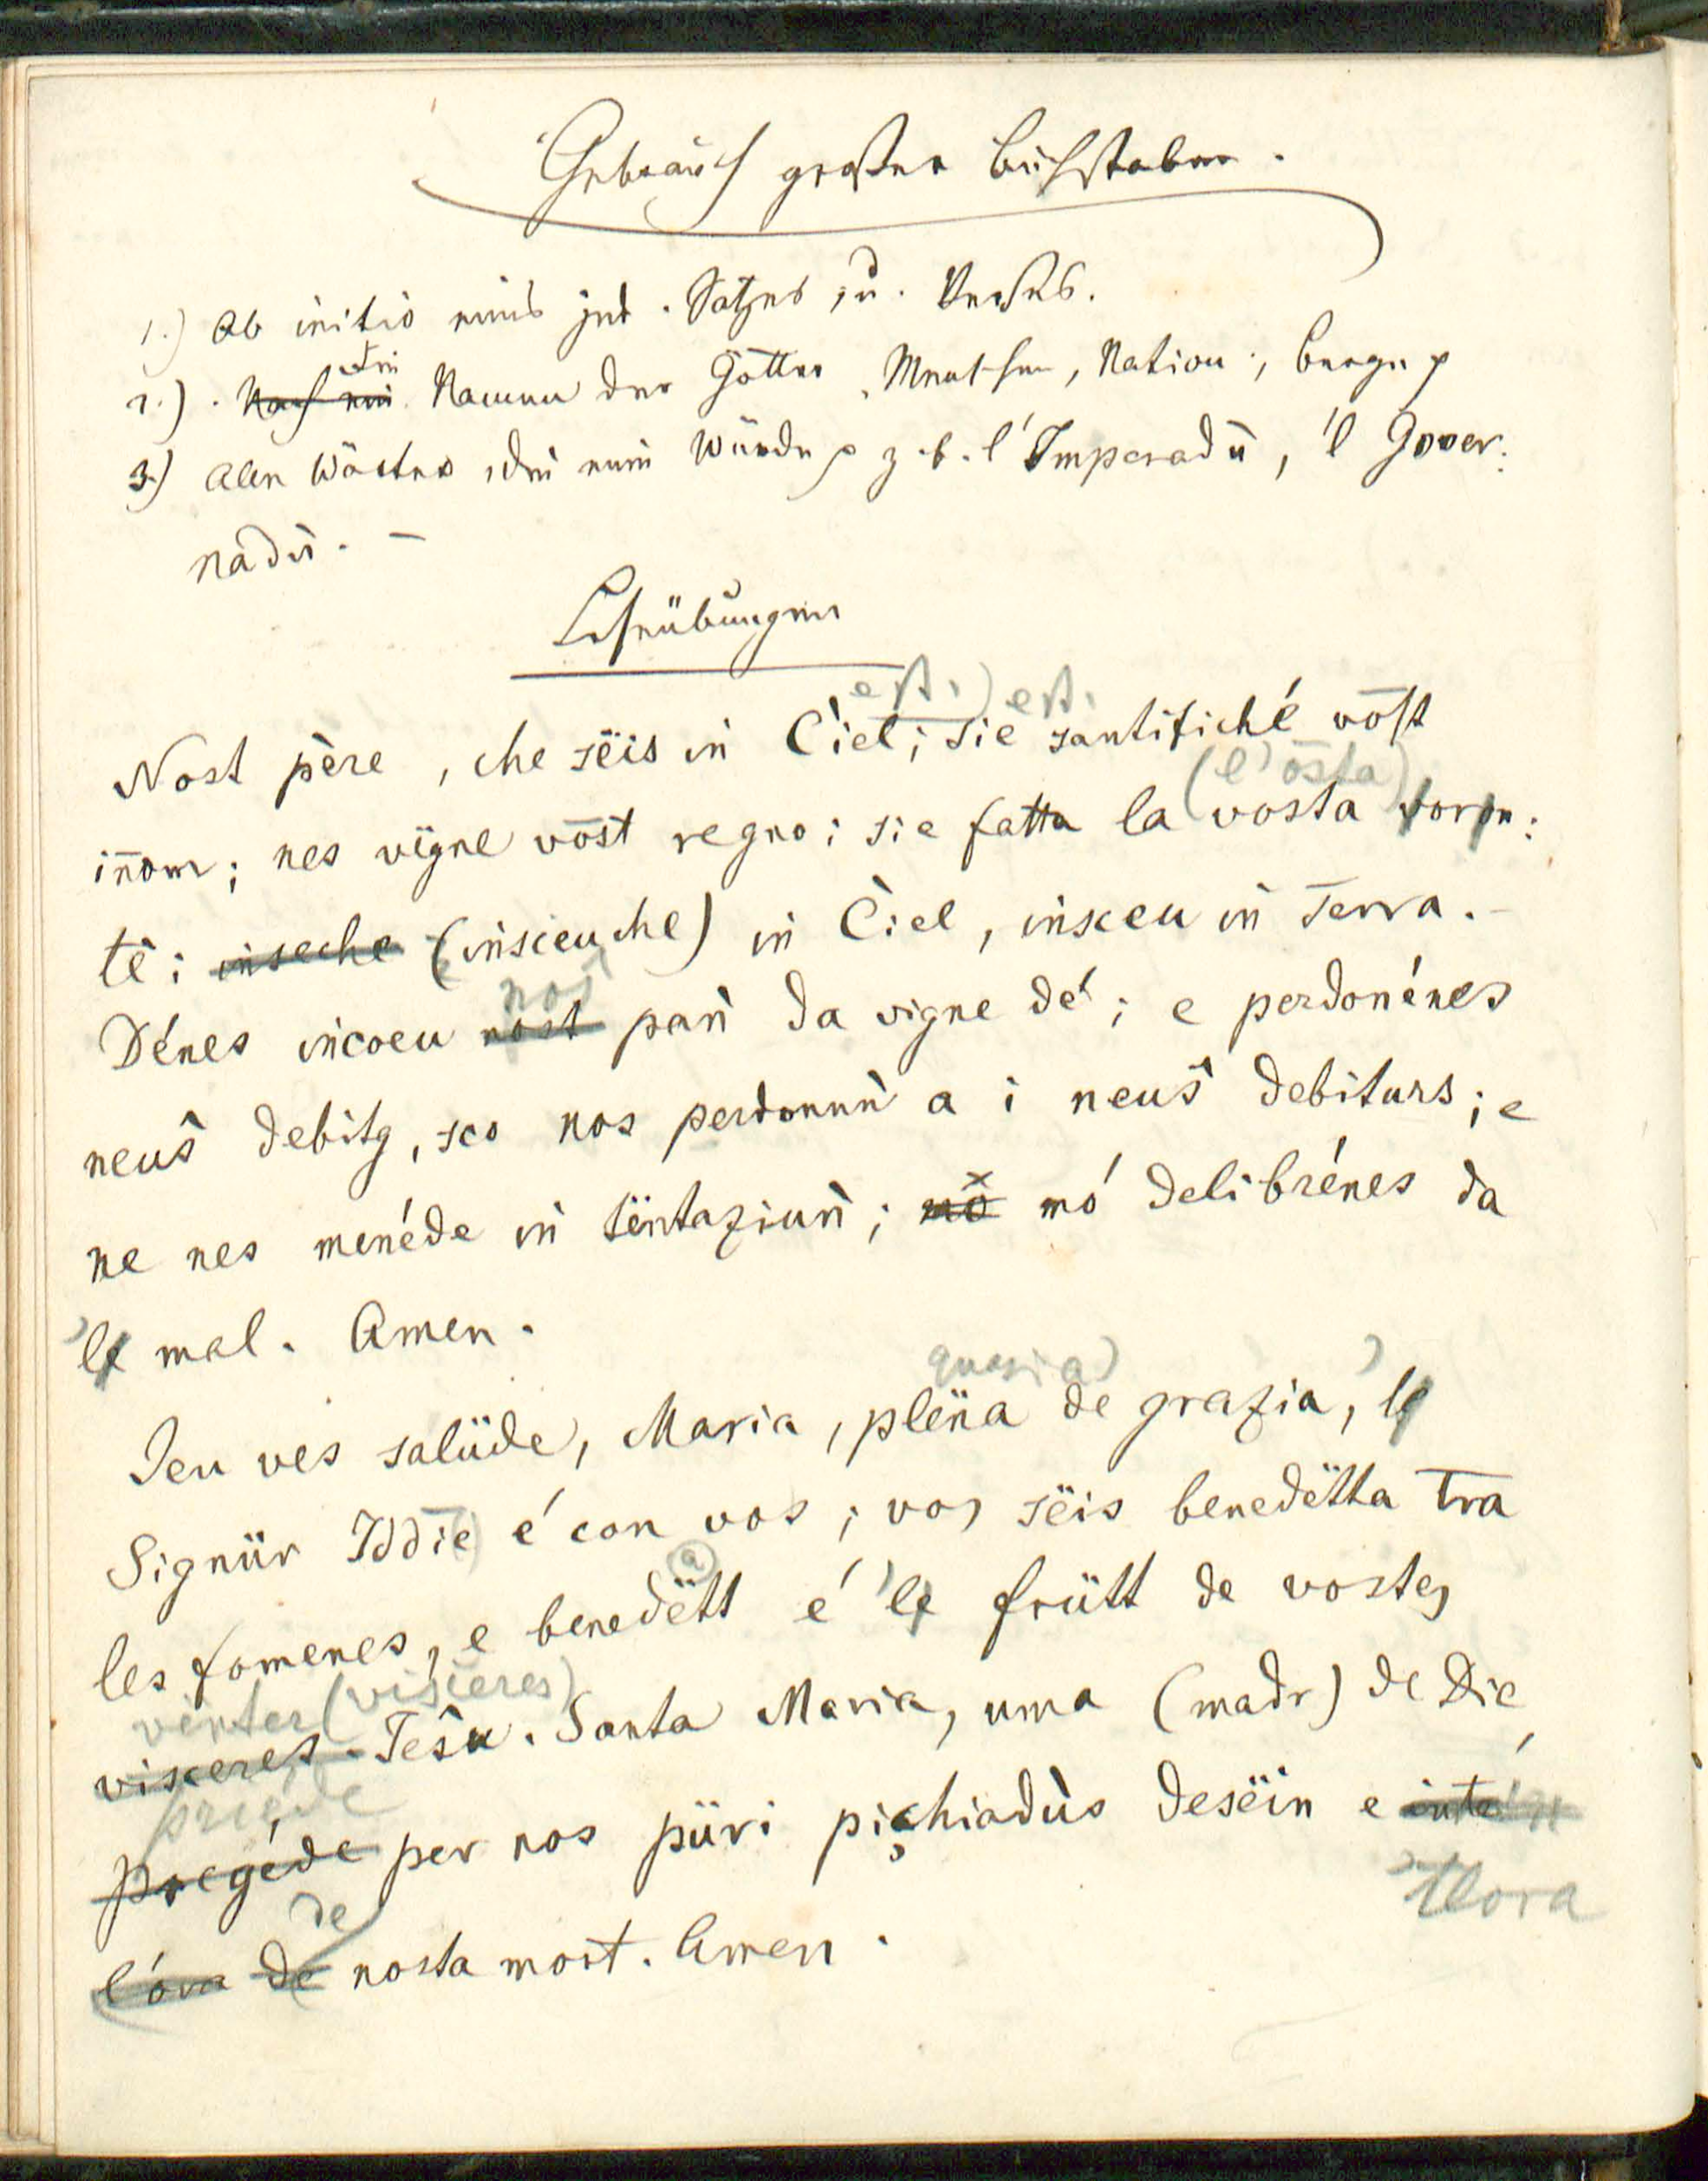 Gebrauch großer Buchstaben.
1.) Ab initio eines jed. Satzes, u. Verses.
2.) Nach ein die Namen der Götter, Menschen, Nation:, Berge
3.) Allen Wörter, die eine Würde z.b. l'Imperadù, 'l Gover:
nadù. –
Leseübungen
est.) est.
Nost père, che sëis in Ciel; sie santifiché vōst
(l'osta)
inom; nes vïgne vōst regno; sie fatta la vosta voron:
té; inseche (insceu che) in Ciel, insceu in Terra. –
nos
Dénes incoeu nost pan da vigne dé; e perdonénes
neus debitg, sco nos perdonun a i neus debiturs; e
ne nes menéde in tëntaziun; mo mó delibrénes da
'le mal. Amen.
Jeu ves salüde, Maria, plëna de grazia, 'le
Signür Iddie é con vos; vos sëis benedëtta tra
a
les fomenes, e benedëtt é 'le frütt de vostes
vënter (visceres)
visceres. Jesu. Santa Maria, uma (madr) de Die,
priéde
pregéde per nos püri pichiadùs desëin e inte
'llora
de
l'óra de nosta mort. Amen.